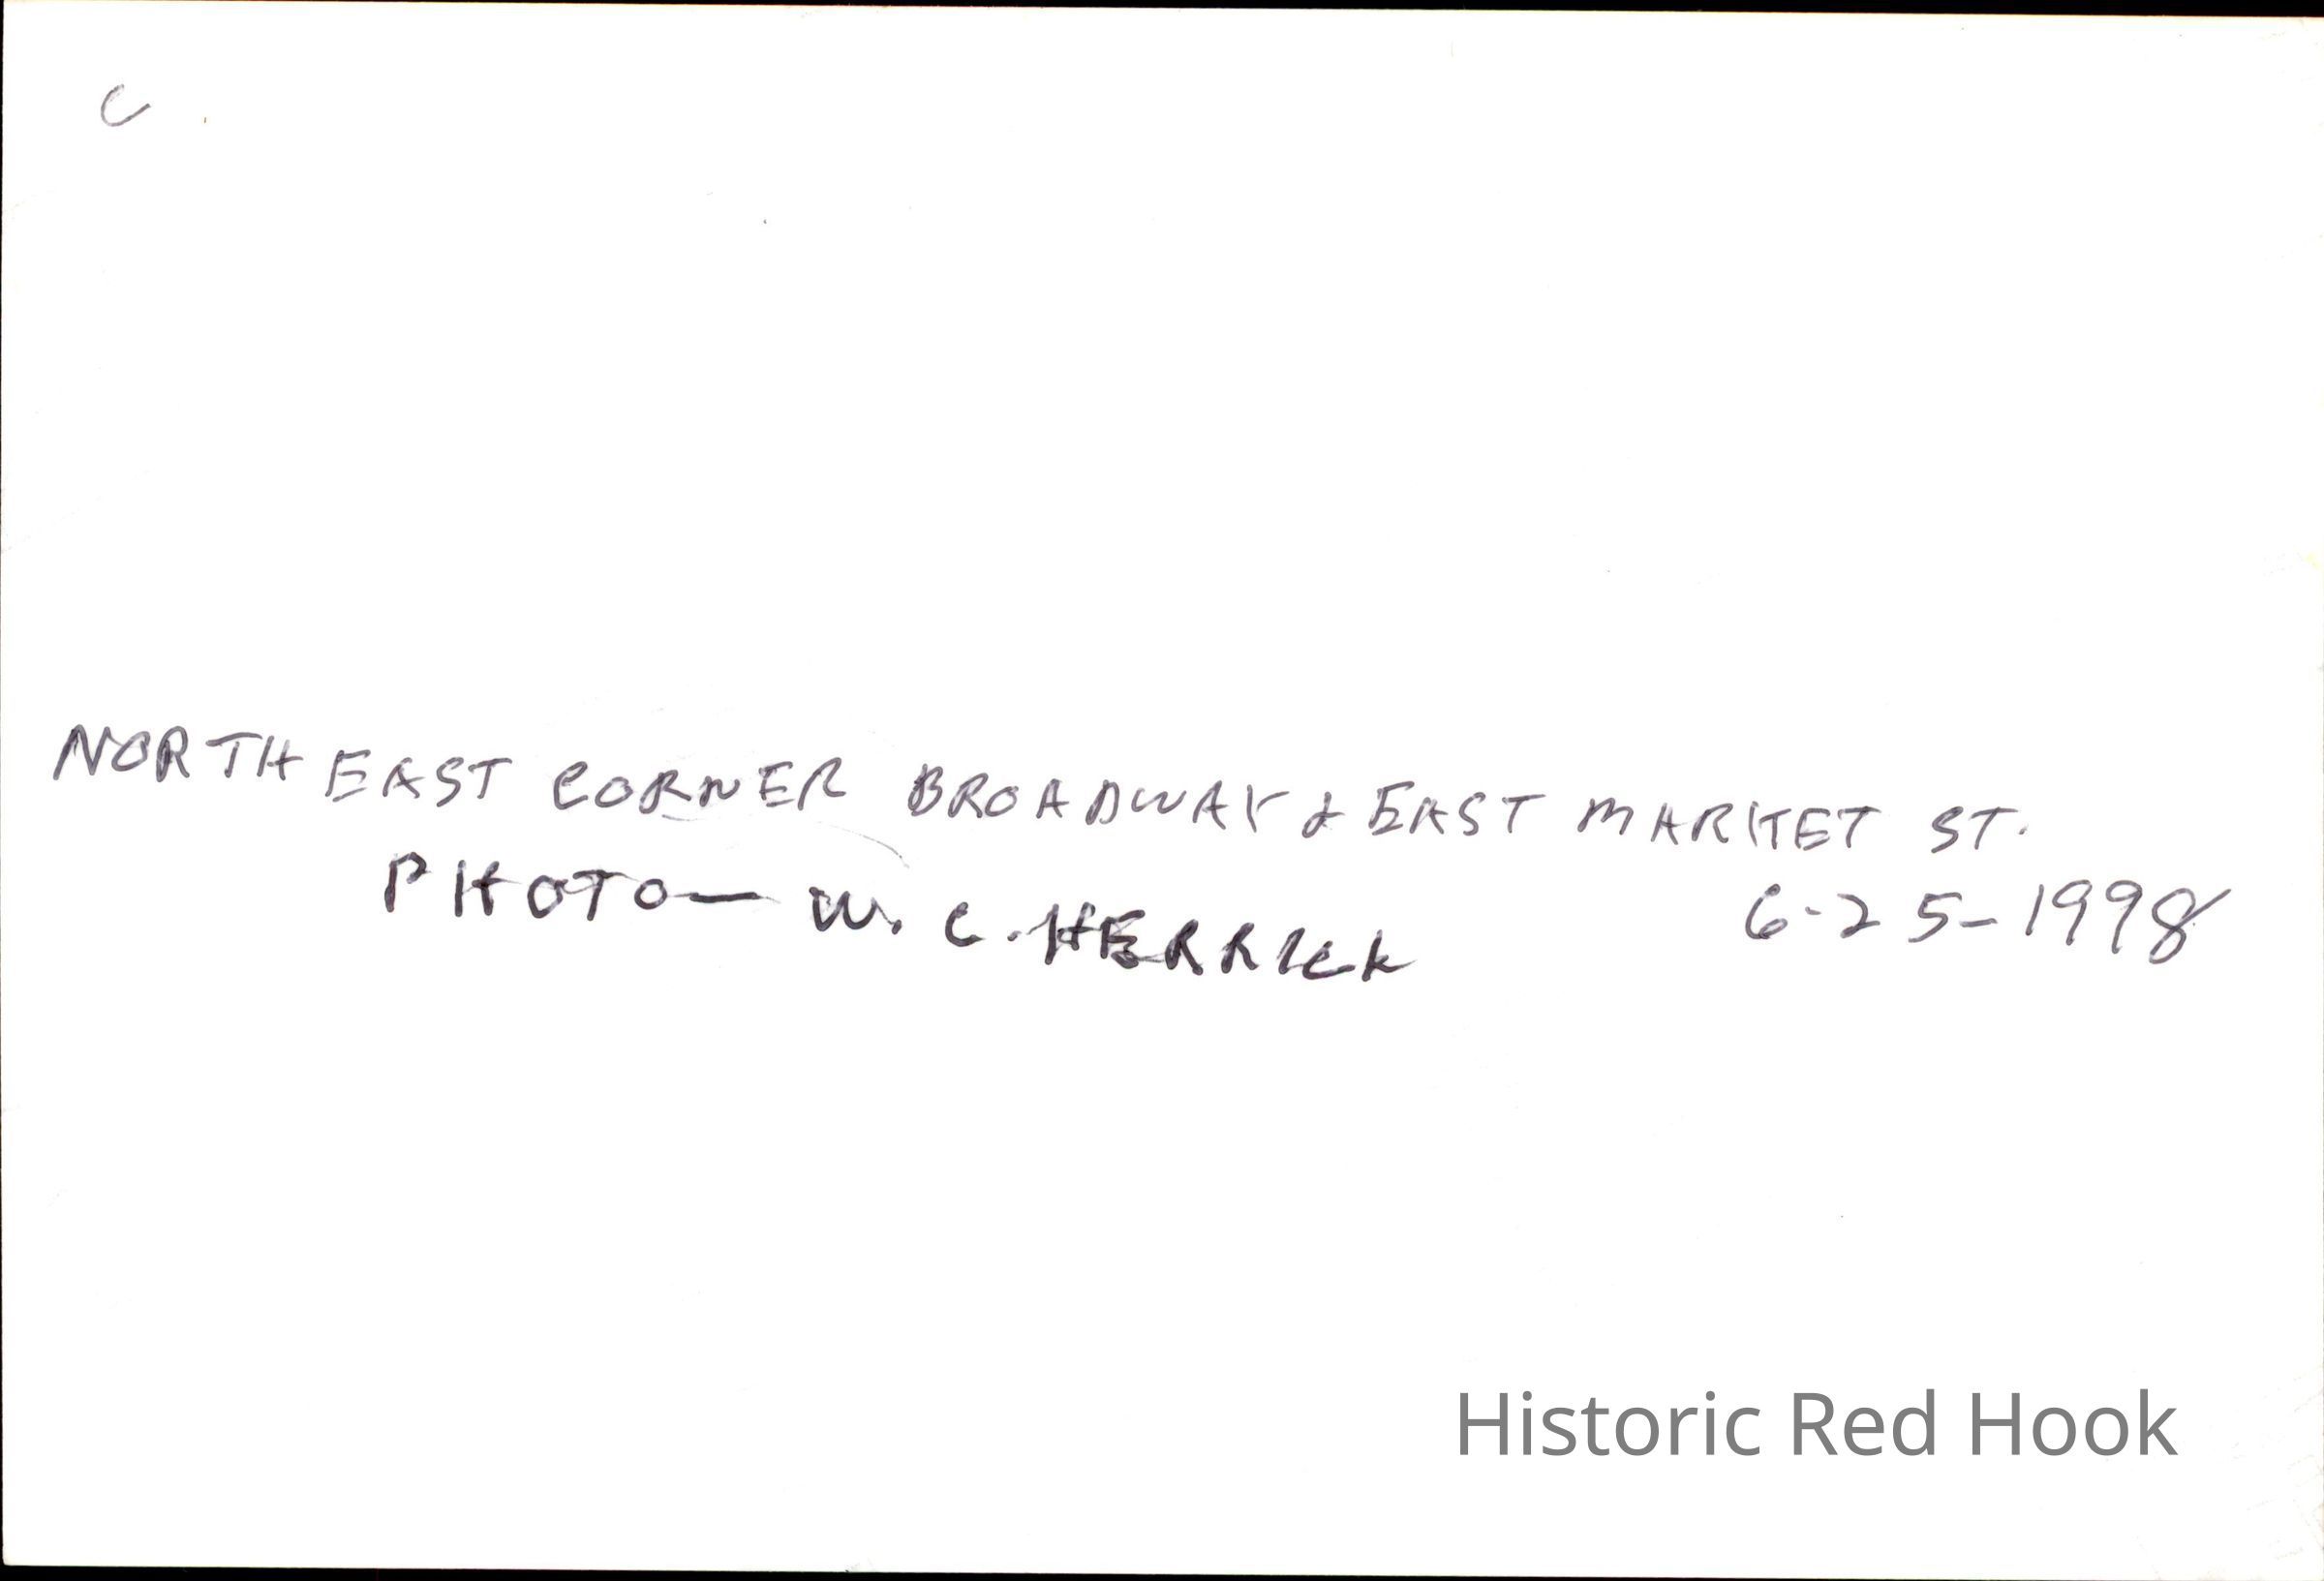 C
NORTH EAST CORNER BROADWAY & EAST MARKET ST.
PHOTO — W. C. HERRICK 6-25-1998
Historic Red Hook